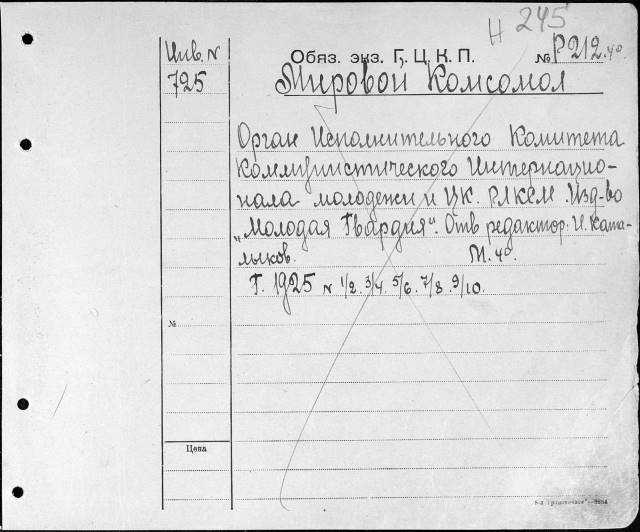 Н 245
Инв. N
725
Обяз. экз. Г. Ц. К. П. № Р212. 4°
Мировой Комсомол
Орган Исполнительного Комитета
Коммунистического Интернацио-
нала молодежи и ЦК. РЛКСМ. Изд-во
„Молодая Гвардия“. Отв редактор: И. Ката-
лыков. М. 4°.
Г. 1925 N 1/2. 3/4. 5/6. 7/8. 9/10.
№
Цена